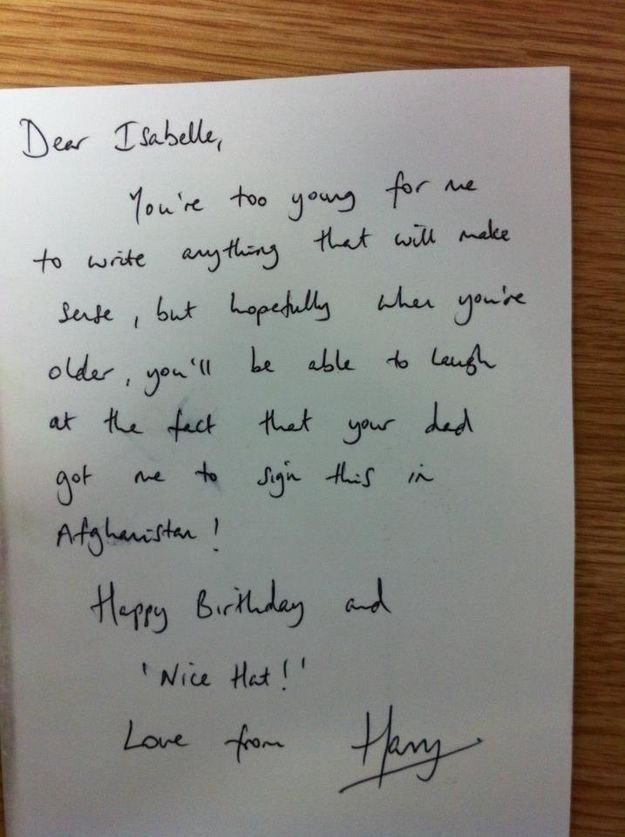 Dear Isabelle,
You're too young for me
to write anything that will make
sense, but hopefully when you're
older, you'll be able to laugh
at the fact that your dad
got me to sign this in
Afghanistan!
Happy Birthday and
'Nice Hat!'
Love from Harry